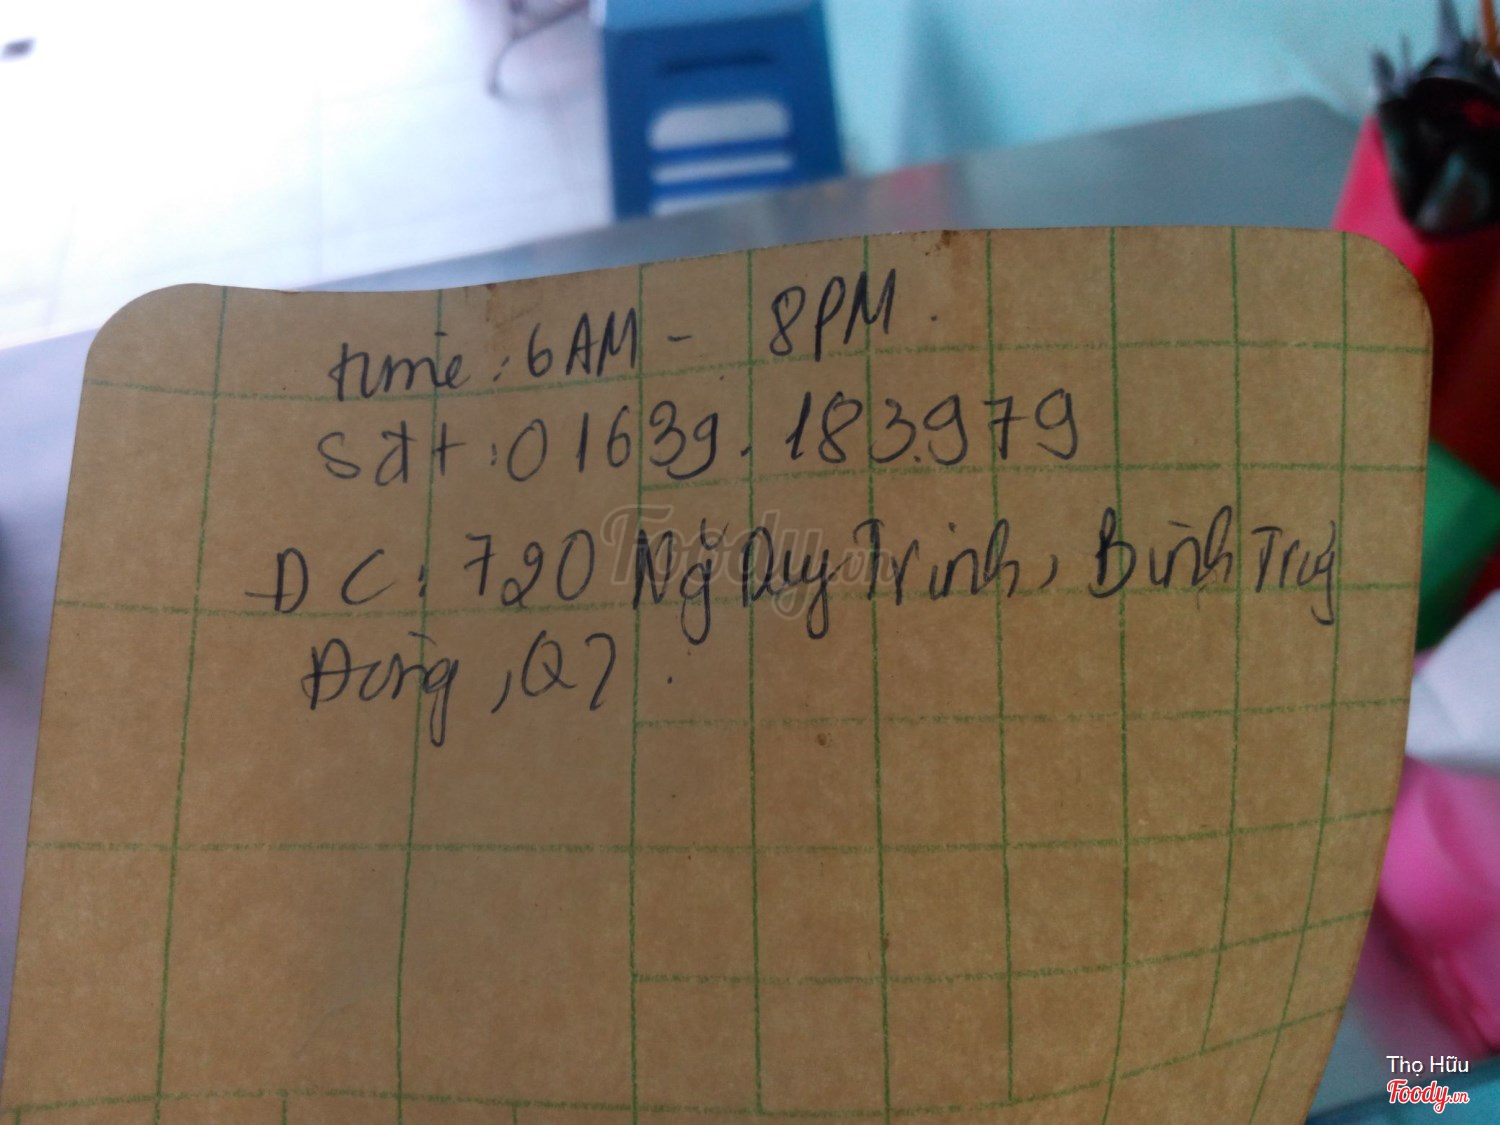 time: 6AM - 8PM.
sđt: 01639.183.979
ĐC: 720 Ng~ Duy Trinh, Bình Trưng
Đông, Q2.
Foody.vn
Thọ Hữu
Foody.vn